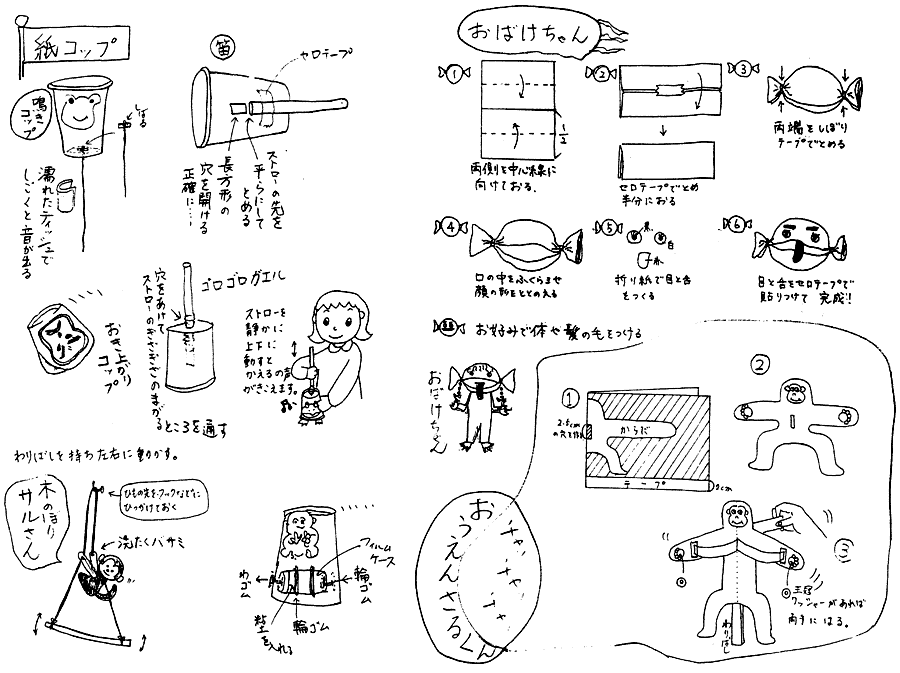 紙コップ
鳴き
コップ
しばる
濡れたティッシュで
しごくと音が出る
笛
セロテープ
ストローの先を
平らにして
とめる
長方形の
穴を開ける
正確に……
おき上がり
コップ
ゴロゴロガエル
穴をあけて
ストローのぎざぎざのまがる
ところを通す
ストローを
静かに
上下に
動すと
かえるの声
がきこえます。
わりばしを持ち左右に動かす。
木のぼり
サルさん
ひもの先をフックなどに
ひっかけておく
洗たくバサミ
フィルム
ケース
わ
ゴム
輪
ゴム
輪ゴム
を入れる
おばけちゃん
①
両側を中心線に
向けておる。
1/2
②
セロテープでとめ
半分におる
③
両端をしぼり
テープでとめる
④
口の中をふくらませ
顔の形をととのえる
⑤
黒
白
赤
折り紙で目と舌
をつくる
⑥
目と舌をセロテープで
貼りつけて 完成!!
お好みで体や髪の毛をつける
おばけちゃん
チャチャチャ
おうえんさるくん
①
からだ
テープ
②
③
ワッシャーがあれば
両手にはる。
わりばし